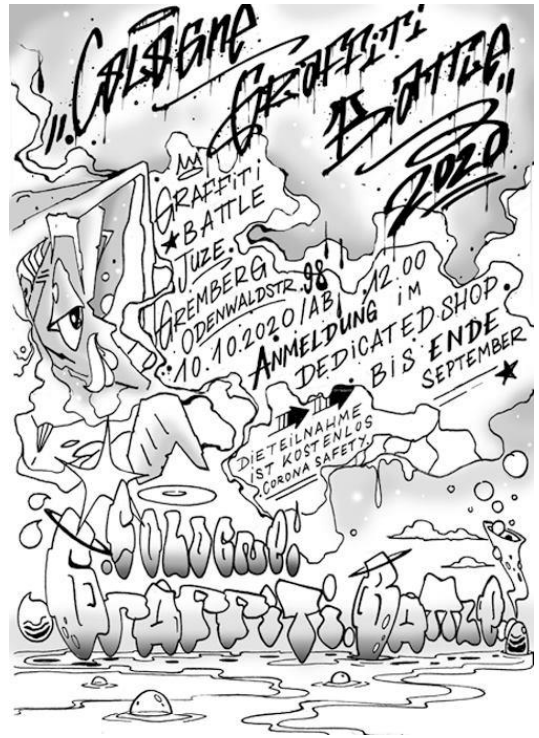 „Cologne
Graffiti
Battle“
2020
GRAFFiTi
BATTLE
JUZE.
GREMBERG
ODENWALDSTR. 98
10.10.2020/AB 12.00
ANMELDUNG iM
DEDiCATED.SHOP.
BiS ENDE
SEPTEMBER
DiE TEiLNAHME
iST KOSTENLOS
.CORONA SAFETY.
.Cologne!
Graffiti.Battle.